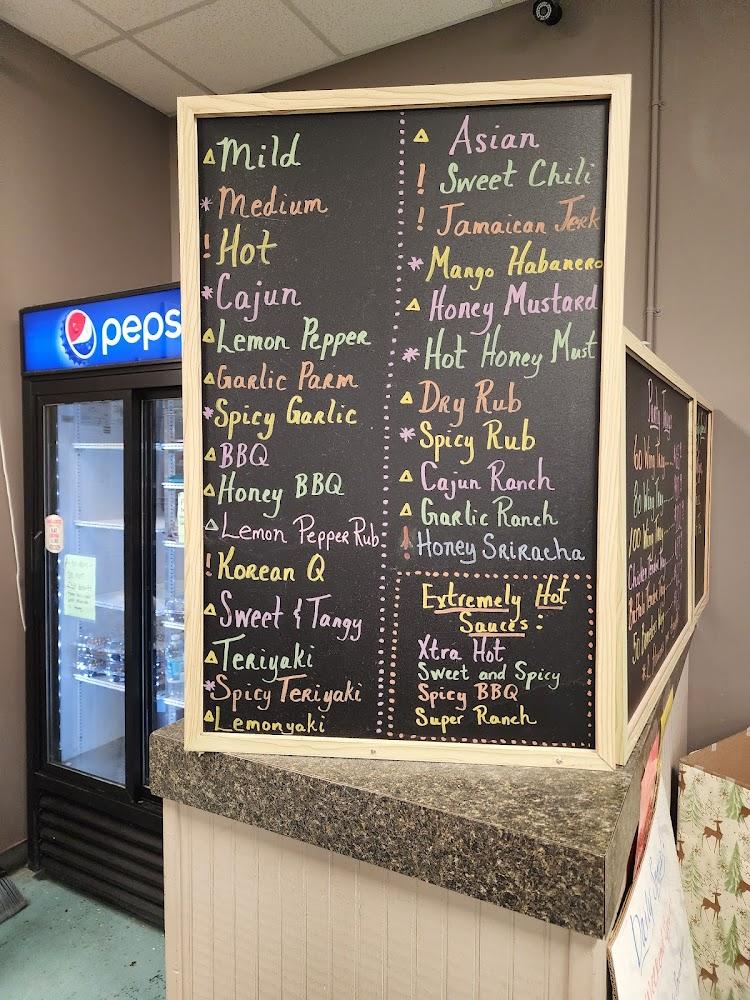 Mild
* Medium
! Hot
* Cajun
Lemon Pepper
Garlic Parm
* Spicy Garlic
BBQ
Honey BBQ
Lemon Pepper Rub
! Korean Q
Sweet & Tangy
Teriyaki
* Spicy Teriyaki
Lemonyaki
Asian
! Sweet Chili
! Jamaican Jerk
* Mango Habanero
Honey Mustard
* Hot Honey Must
Dry Rub
* Spicy Rub
Cajun Ranch
Garlic Ranch
! Honey Sriracha
Extremely Hot
Sauces:
Xtra Hot
Sweet and Spicy
Spicy BBQ
Super Ranch
peps
Party Trays
60 Wing Tray
80 Wing Tray
100 Wing Tray
Daily